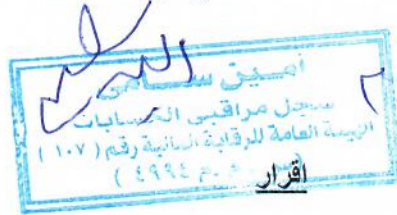 أمين سامى
سجل مراقبى الحسابات
الهيئة العامة للرقابة المالية رقم ( ١٠٧ )
م ٤٩٩٤ )
اقرار